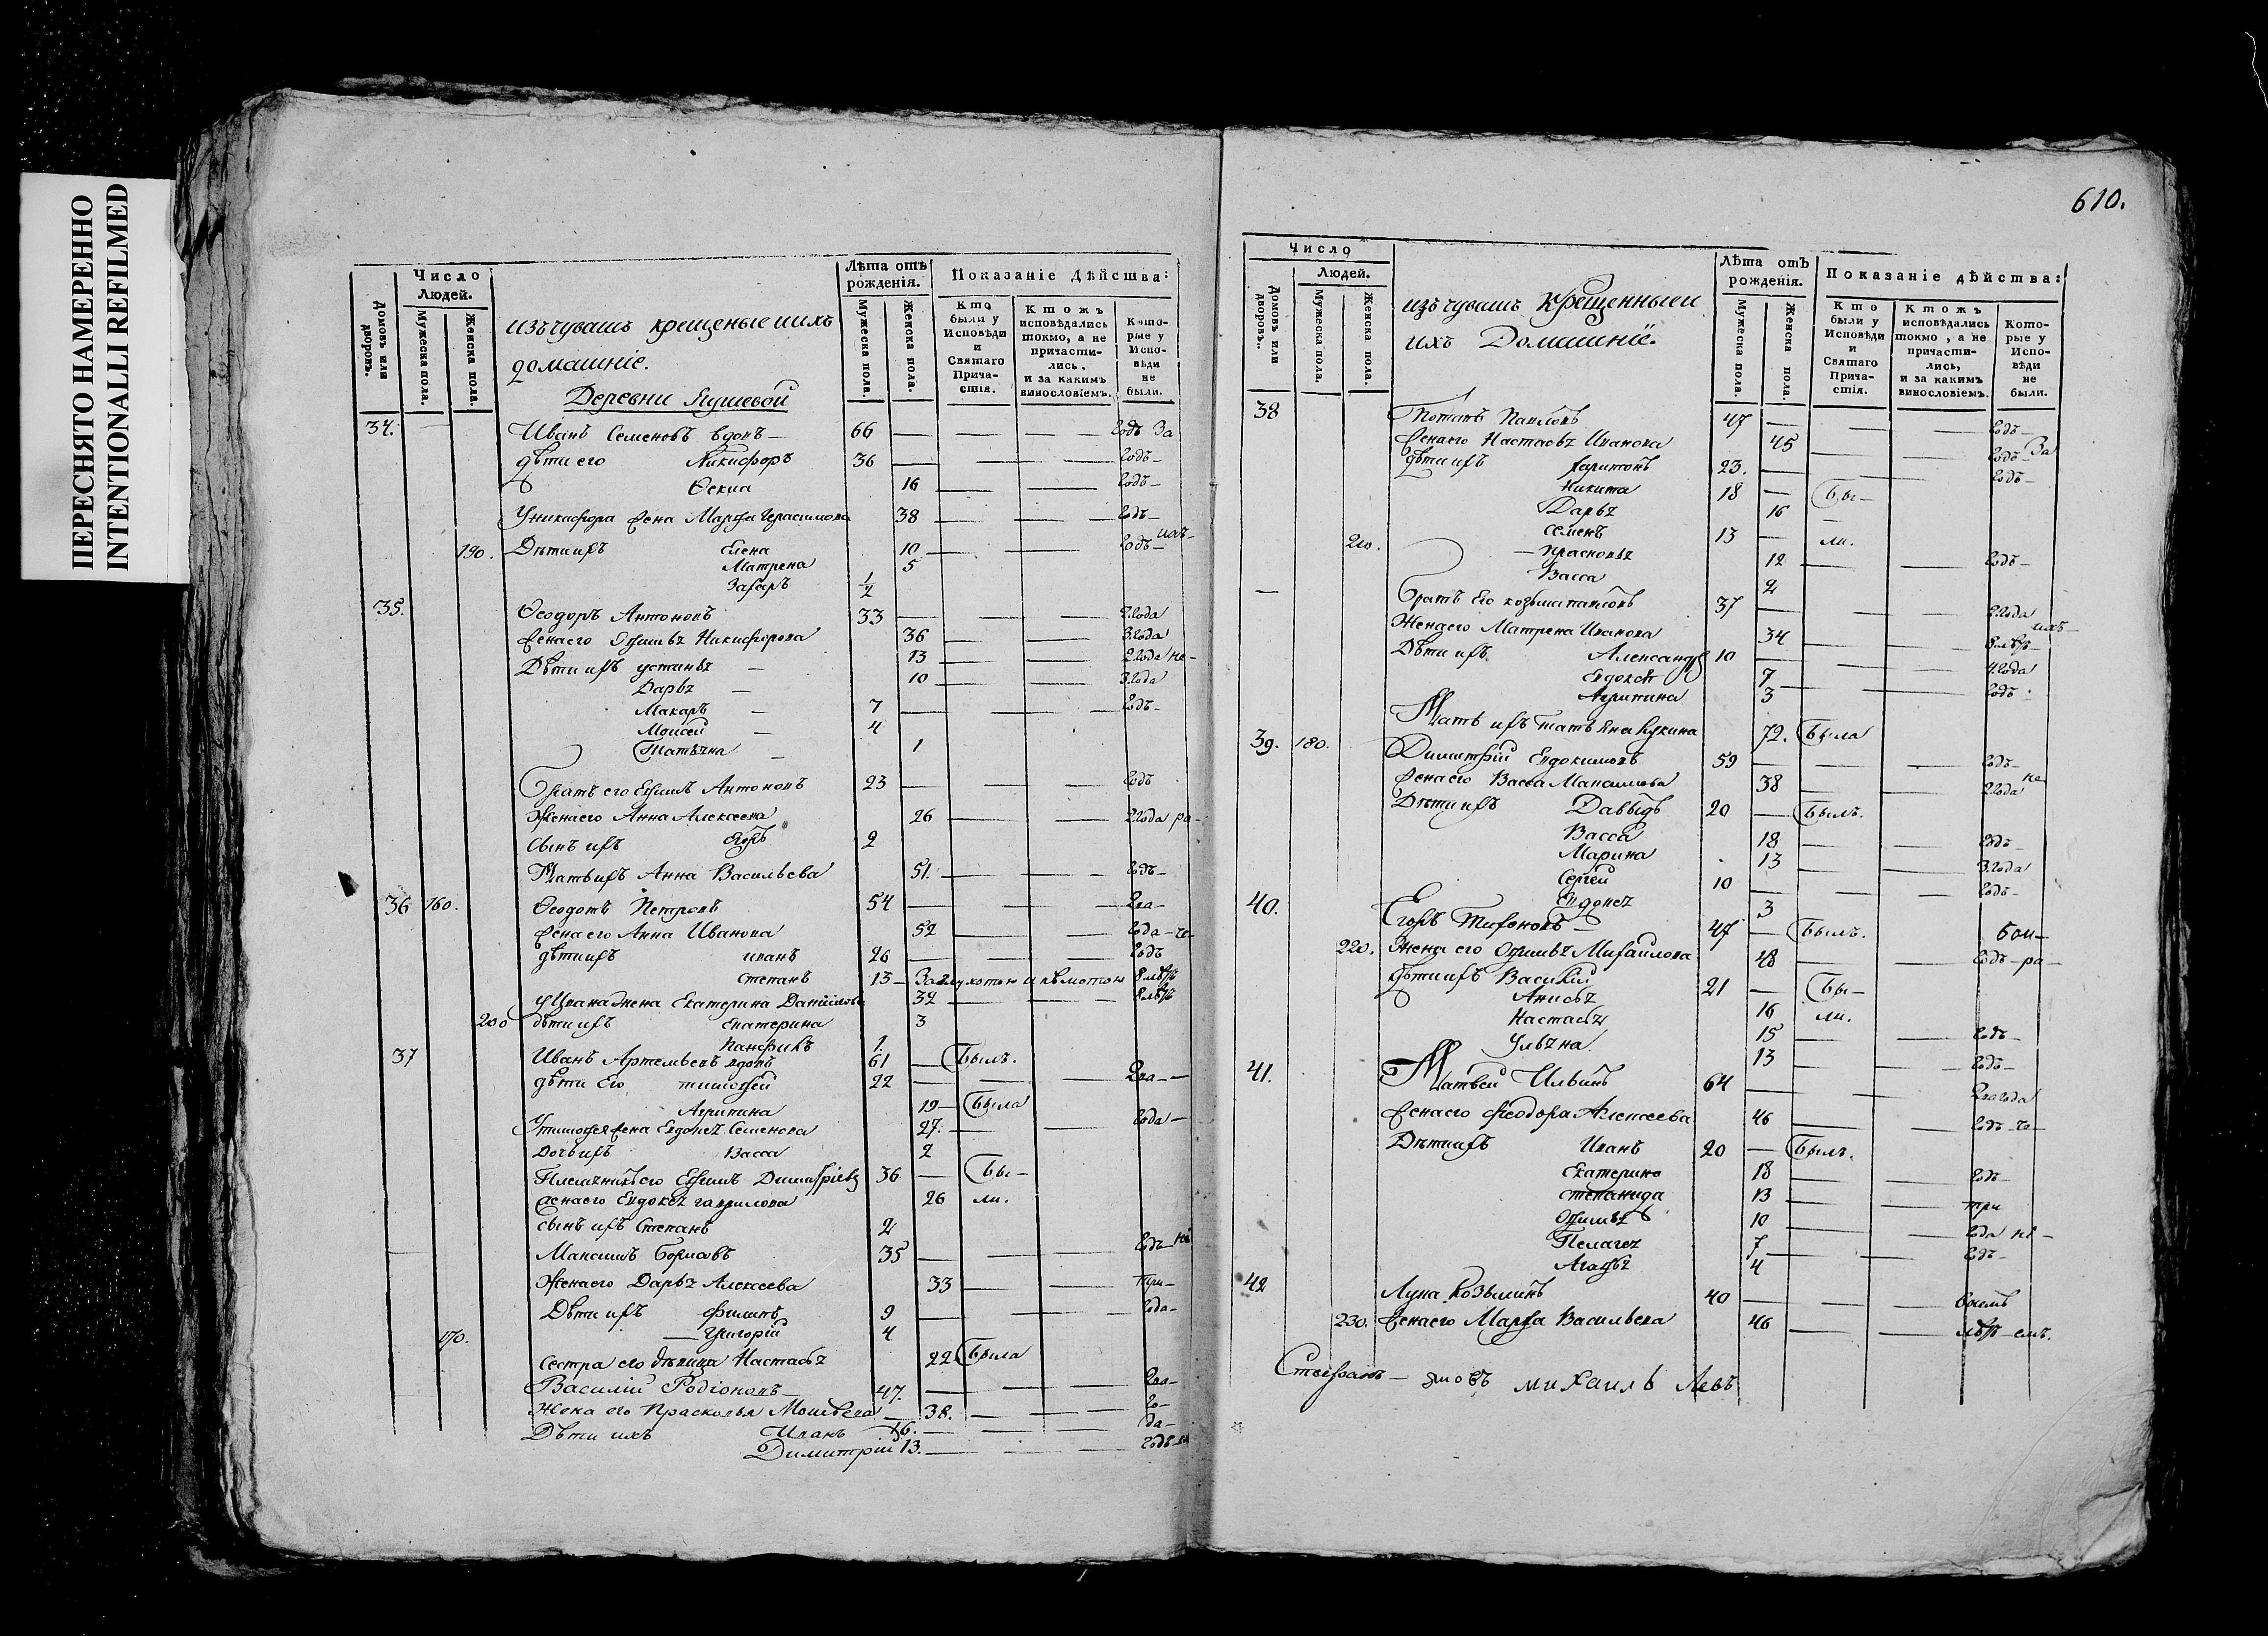 ПЕРЕСНЯТО НАМЕРЕННО
INTENTIONALLI REFILMED
Число
Людей.
Домовъ или дворовъ.
Мужеска пола.
Женска пола.
изъ чувашъ крещеные и ихъ
домашніе.
Деревни
Лѣта отъ
рожденія.
Мужеска пола.
Женска пола.
Показаніе дѣйства:
Кто были у Исповѣди и Святаго Причастія.
Ктожъ исповѣдались токмо, а не причастились, и за какимъ винословіемъ.
Которые у Исповѣди не были.
34. Иванъ Семеновъ вдовъ — 66 — — — Годъ За
дѣти его Никифоръ 36 — — — Годъ —
Ѳекла 16 — — Годъ —
У Никифора жена Марфа Герасимова 38 — — Годъ —
190. Дѣти ихъ Елена 10 — — Годъ —
Матрена 5
Захаръ 1/2
35. Ѳеодоръ Антоновъ 33 — — — 2 Года
Жена его Офимья Никифорова 36 — — 3 Года
Дѣти ихъ Устинья — 13 — — 2 Года не —
Дарья — 10 — — 3 Года
Макаръ — 7 — — — Годъ —
Моисей — 4
Татьяна — 1
Братъ его Ефимъ Антоновъ 23 — — — Годъ
Жена его Анна Алексеева 26 — — 2 Года ра —
Сынъ ихъ Егоръ 2
Мать ихъ Анна Васильева 51. — — Годъ —
36 160. Ѳеодотъ Петровъ 54 — — — Два —
Жена его Анна Иванова 52 — — Года —
дѣти ихъ Иванъ 26 — — — Годъ
Степанъ 15 — За глухотою и немотою 8 лѣтъ
У Ивана жена Екатерина Данилова 32 — — 8 лѣтъ
200 дѣти ихъ Екатерина 3
Панфилъ 1.
37 Иванъ Артемьевъ вдовъ 61 — Былъ.
дѣти Его Тимофей 22 — — — Два —
Агрипина 19 — Была
У Тимофея жена Евдокея Семенова 27. — Года —
Дочь ихъ Васса 2
Племянникъ его Ефимъ Димитріевъ 36 — Бы —
Жена его Евдокея Гаврилова 26 ли.
Сынъ ихъ Степанъ 2
— Максимъ Борисовъ 35 — — — Годъ
Жена его Дарья Алексеева 33 — — Три —
Дѣти ихъ Филипъ 9 — — — Года —
170. — Григорій 4
Сестра его дѣвица Настасья 22 Была
Василій Родіоновъ — 47. — — — Два —
Жена его Прасковья Моисѣева — 38. — — Го —
Дѣти ихъ Иванъ 16. — — — да —
Димитрій 13. — — — Годъ
610.
Число
Людей.
Домовъ или дворовъ.
Мужеска пола.
Женска пола.
изъ чувашъ Крещенныеи
ихъ Домашніе.
Лѣта отъ
рожденія.
Мужеска пола.
Женска пола.
Показаніе дѣйства:
Кто были у Исповѣди и Святаго Причастія.
Ктожъ исповѣдались токмо, а не причастились, и за какимъ винословіемъ.
Которые у Исповѣди не были.
38 Павловъ 47 — — Годъ —
Жена его Настасья Иванова 45 — — Годъ — За
Дѣти ихъ Харитонъ 23. — — Годъ —
Никита 18 — Бы —
Дарья 16 —
Семенъ 13 — ли.
210. — Прасковья 12 — — Годъ —
Васса 2
— Братъ Его Козьма Павловъ 37 — — — 2 Года
Жена его Матрена Иванова 34 — — 8 лѣтъ —
Дѣти ихъ Александръ 10 — — — 4 Года
Евдокея 7 — — Годъ
Агрипина 3
Мать ихъ Татьяна Лукина 72. Была
39. 180. Димитрій Евдокимовъ 59 — — — Годъ —
Жена его Васса Максимова 38 — — 2 Года не
Дѣти ихъ Давыдъ 20 — Былъ.
Васса 18 — — Годъ —
Марина 13 — — 3 Года
Сергей 10 — — — Годъ —
Евдокея 3
40. Егоръ Тифоновъ — 47 — Былъ.
220. Жена его Офимья Михайлова 48 — — Годъ — ра —
Дѣти ихъ Василий 21 — Бы —
Анисья 16 ли.
Настасья 15 — — Годъ —
Ульяна. 13 — — Годъ —
41. Матвей Ильинъ 64 — — — Два года
Жена его Феодора Алексеева 46 — — Годъ —
Дѣти ихъ Иванъ 20 — Былъ.
Екатерина 18 — — Годъ —
Степанида 13 — — три
Офимья 10 — — Года
Пелагея 7 — — Годъ —
Агафья 4
42 Лука Козьминъ 40 — — — Восемь
230. Жена его Марфа Васильева 46 — — лѣтъ
михаилъ Левъ